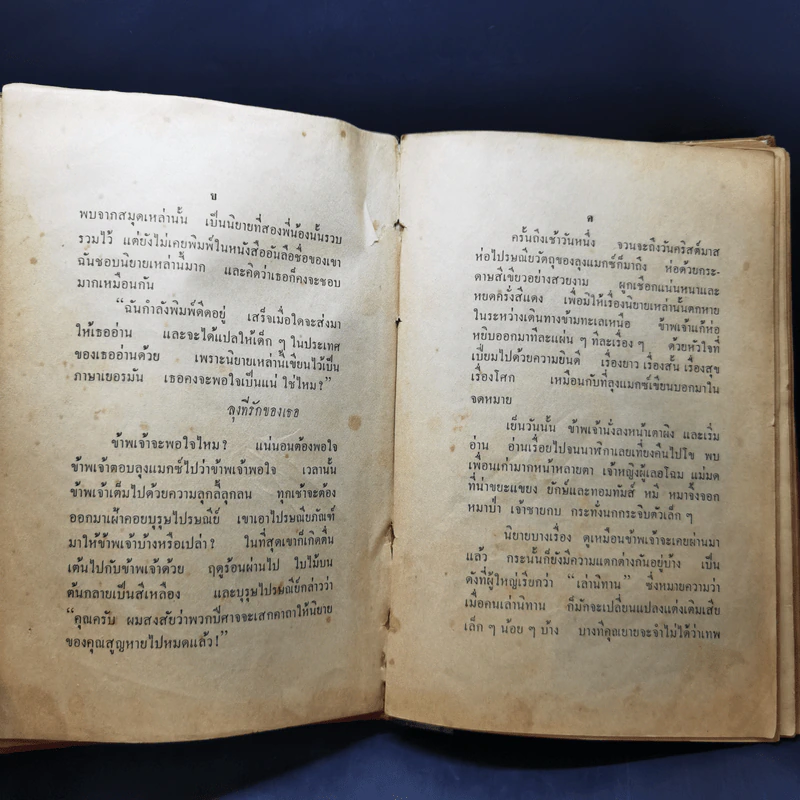 ข
พบจากสมุดเหล่านั้น เป็นนิยายที่สองพี่น้องนั้นรวบ
รวมไว้ แต่ยังไม่เคยพิมพ์ในหนังสืออันลือชื่อของเขา
ฉันชอบนิยายเหล่านี้มาก และคิดว่าเธอก็คงจะชอบ
มากเหมือนกัน
“ฉันกำลังพิมพ์ดีดอยู่ เสร็จเมื่อใดจะส่งมา
ให้เธออ่าน และจะได้แปลให้เด็ก ๆ ในประเทศ
ของเธออ่านด้วย เพราะนิยายเหล่านี้เขียนไว้เป็น
ภาษาเยอรมัน เธอคงจะพอใจเป็นแน่ ใช่ไหม?”
ลุงที่รักของเธอ
ข้าพเจ้าจะพอใจไหม? แน่นอนต้องพอใจ
ข้าพเจ้าตอบลุงแมกซ์ไปว่าข้าพเจ้าพอใจ เวลานั้น
ข้าพเจ้าเต็มไปด้วยความลุกลี้ลุกลน ทุกเช้าจะต้อง
ออกมาเฝ้าคอยบุรุษไปรษณีย์ เขาเอาไปรษณียภัณฑ์
มาให้ข้าพเจ้าบ้างหรือเปล่า? ในที่สุดเขาก็เกิดตื่น
เต้นไปกับข้าพเจ้าด้วย ฤดูร้อนผ่านไป ใบไม้บน
ต้นกลายเป็นสีเหลือง และบุรุษไปรษณีย์กล่าวว่า
“คุณครับ ผมสงสัยว่าพวกปีศาจจะเสกคาถาให้นิยาย
ของคุณสูญหายไปหมดแล้ว!”
ค
ครั้นถึงเช้าวันหนึ่ง จวนจะถึงวันคริสต์มาส
ห่อไปรษณียวัตถุของลุงแมกซ์ก็มาถึง ห่อด้วยกระ-
ดาษสีเขียวอย่างสวยงาม ผูกเชือกแน่นหนาและ
หยดครั่งสีแดง เพื่อมิให้เรื่องนิยายเหล่านั้นตกหาย
ในระหว่างเดินทางข้ามทะเลเหนือ ข้าพเจ้าแก้ห่อ
หยิบออกมาทีละแผ่น ๆ ทีละเรื่อง ๆ ด้วยหัวใจที่
เปี่ยมไปด้วยความยินดี เรื่องยาว เรื่องสั้น เรื่องสุข
เรื่องโศก เหมือนกับที่ลุงแมกซ์เขียนบอกมาใน
จดหมาย
เย็นวันนั้น ข้าพเจ้านั่งลงหน้าเตาผิง และเริ่ม
อ่าน อ่านเรื่อยไปจนนาฬิกาเลยเที่ยงคืนไปโข พบ
เพื่อนเก่ามากหน้าหลายตา เจ้าหญิงผู้เลอโฉม แม่มด
ที่น่าขยะแขยง ยักษ์และทอมทัมส์ หมี หมาจิ้งจอก
หมาป่า เจ้าชายกบ กระทั่งนกกระจิบตัวเล็ก ๆ
นิยายบางเรื่อง ดูเหมือนข้าพเจ้าจะเคยผ่านมา
แล้ว กระนั้นก็ยังมีความแตกต่างกันอยู่บ้าง เป็น
ดังที่ผู้ใหญ่เรียกว่า “เล่านิทาน” ซึ่งหมายความว่า
เมื่อคนเล่านิทาน ก็มักจะเปลี่ยนแปลงแต่งเติมเสีย
เล็ก ๆ น้อย ๆ บ้าง บางทีคุณยายจะจำไม่ได้ว่าเทพ